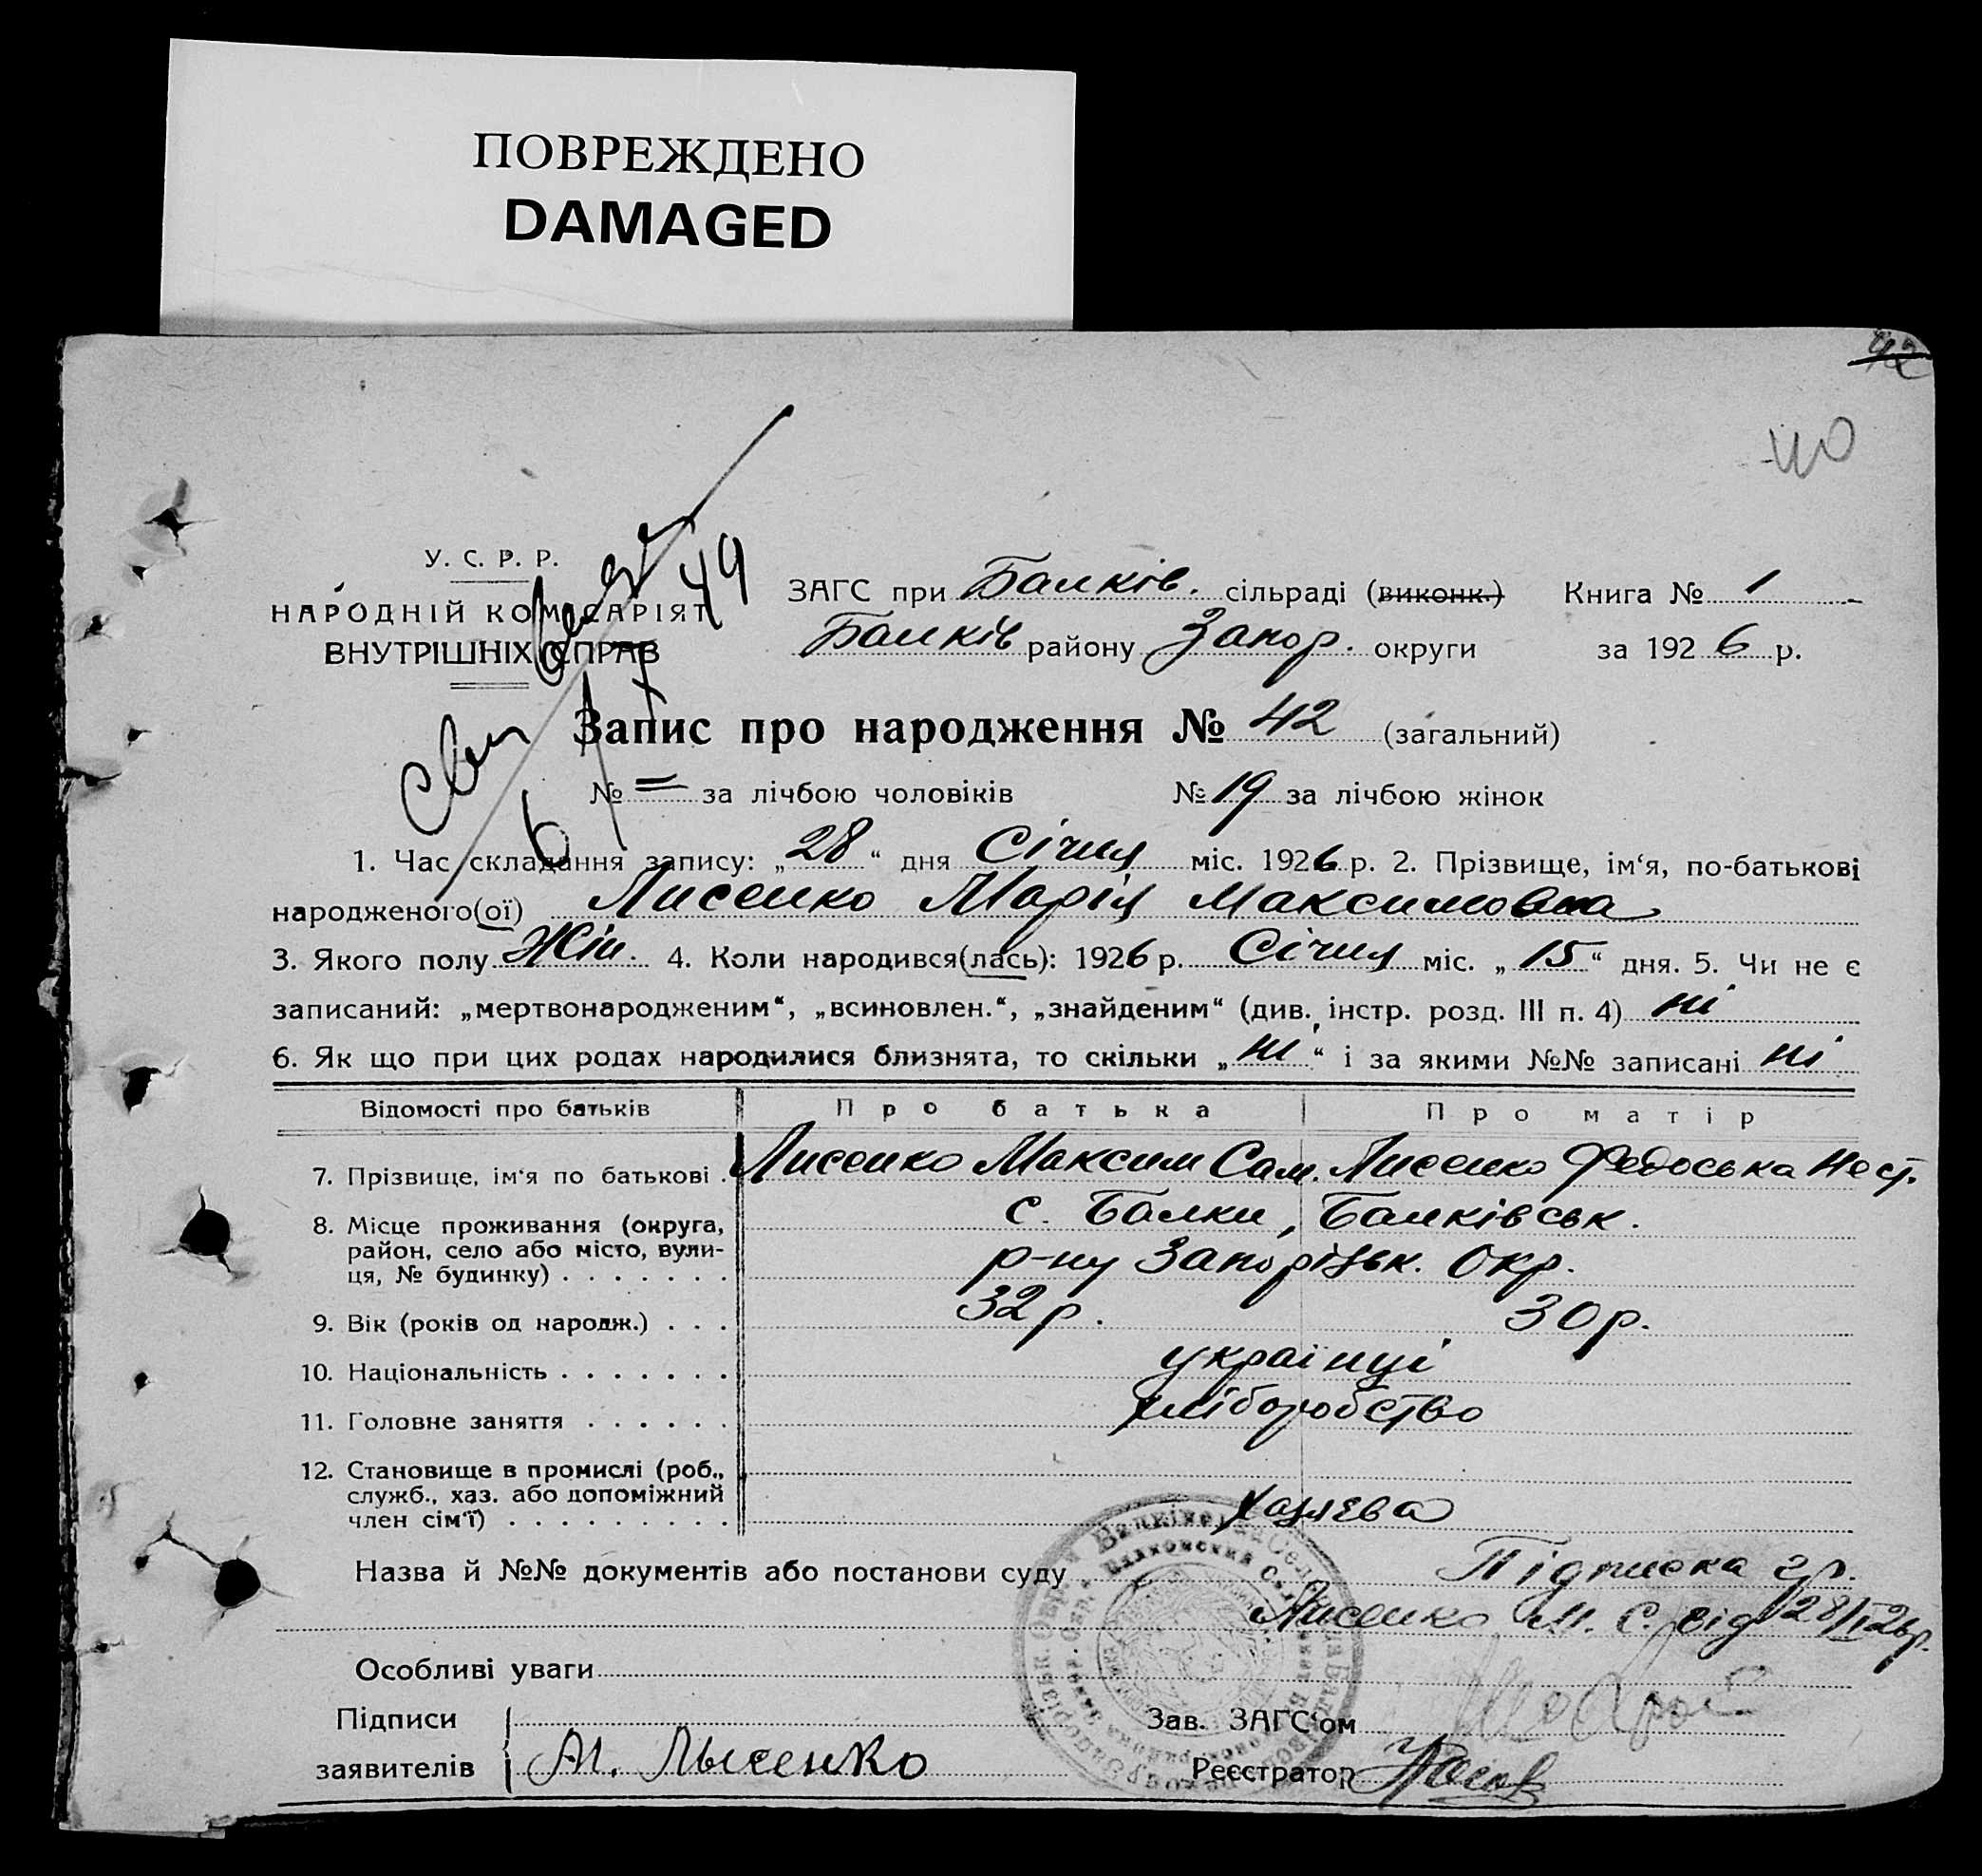 ПОВРЕЖДЕНО
DAMAGED
42
40
У. С. Р. Р.
НАРОДНІЙ КОМІСАРІЯТ
ВНУТРІШНІХ СПРАВ
ЗАГС при Балків. сільраді (виконк.) Книга № 1
Балків району Запор. округи за 1926 р.
Запис про народження № 42 (загальний)
№ = за лічбою чоловіків № 19 за лічбою жінок
1. Час складання запису: „28“ дня Січня міс. 1926 р. 2. Прізвище, ім‘я, по-батькові
народженого(ої) Лисенко Марія Максимовна
3. Якого полу Жін. 4. Коли народився(лась): 1926 р. Січня міс. „15“ дня. 5. Чи не є
записаний: „мертвонародженим“, „всиновлен.“, „знайденим“ (див. інстр. розд. III п. 4) ні
6. Як що при цих родах народилися близнята, то скільки „ні“ і за якими №№ записані ні
Відомості про батьків Про батька Про матір
7. Прізвище, ім‘я по батькові . Лисенко Максим Сам. Лисенко Федоська Нест.
8. Місце проживання (округа, с. Балки, Балківськ.
район, село або місто, вули-
ця, № будинку) . . . . . . . р-ну Запорізьк. Окр.
9. Вік (років од народж.) . . . 32 р. 30 р.
10. Національність . . . . . . . українці
11. Головне заняття . . . . . . хліборобство
12. Становище в промислі (роб.,
служб., хаз. або допоміжний
член сім‘ї) . . . . . . . . . хазяєва
Назва й №№ документів або постанови суду Підписка гр.
Лисенко М. С. від 28/I 26р.
Особливі уваги
Підписи Зав. ЗАГС‘ом
заявителів М. Лысенко Реєстратор